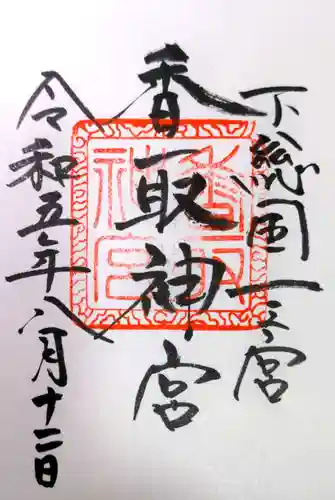 下総国一之宮
香取神宮
令和五年八月十二日
香取
神宮